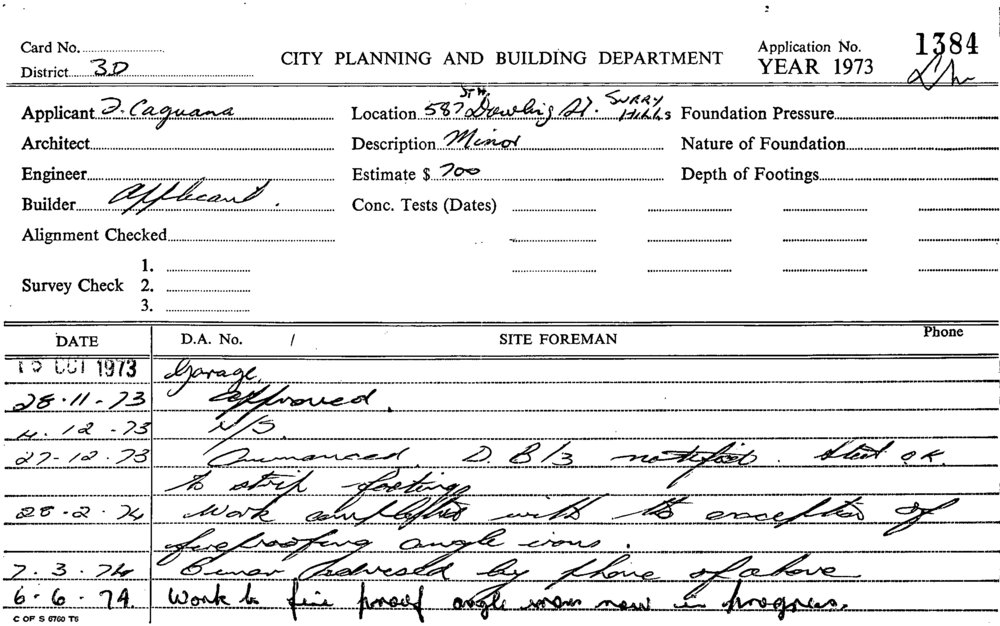 Card No.
District 3D
CITY PLANNING AND BUILDING DEPARTMENT
Application No. 1384
YEAR 1973
Applicant J. Caguana
Location 587 STH. Dowling St. SURRY HILLS
Foundation Pressure
Architect
Description Minor
Nature of Foundation
Engineer
Estimate $ 700
Depth of Footings
Builder Applicant.
Conc. Tests (Dates)
Alignment Checked
1.
Survey Check 2.
3.
DATE D.A. No. / SITE FOREMAN Phone
OCT 1973 Garage.
28.11.73 Approved.
4.12.73 N/S.
27-12.73 D.B/3 notified. Steel O.K.
to strip footings
28.2.74 Work completed with the exception of
fireproofing angle irons.
7.3.74 advised by phone of above
6.6.74. Work to fire proof angle irons now in progress.
C OF S 6760 T6